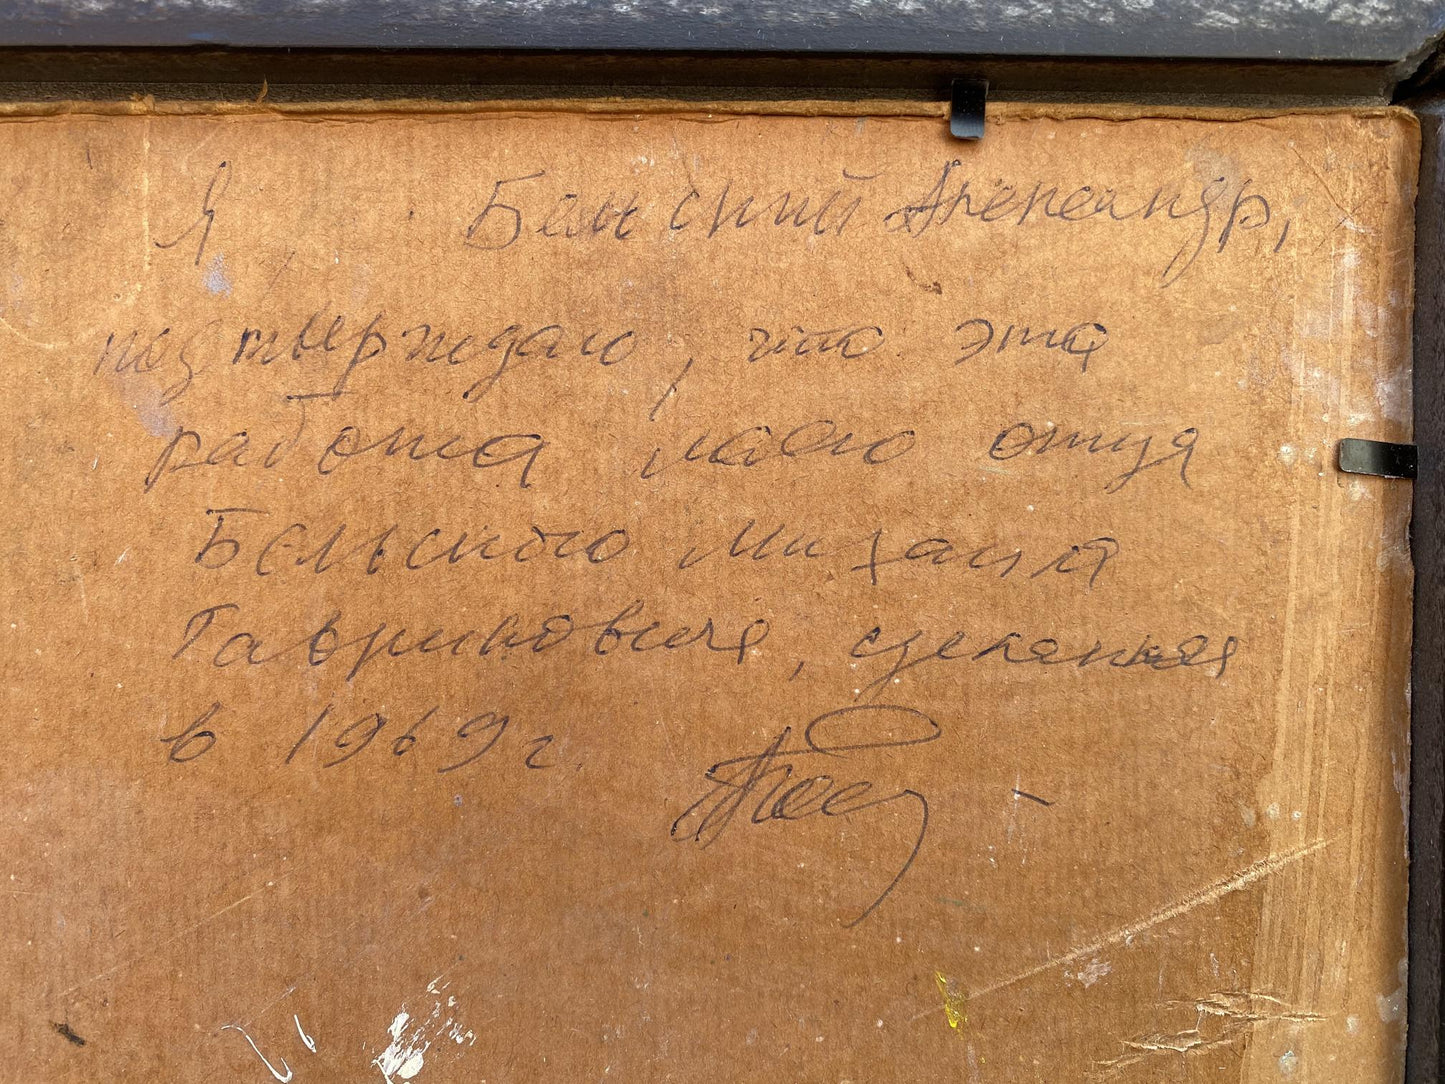 Я Бельский Александр,
подтверждаю, что эта
работа моего отца
Бельского Михаила
Гавриловича, сделанная
в 1969 г.